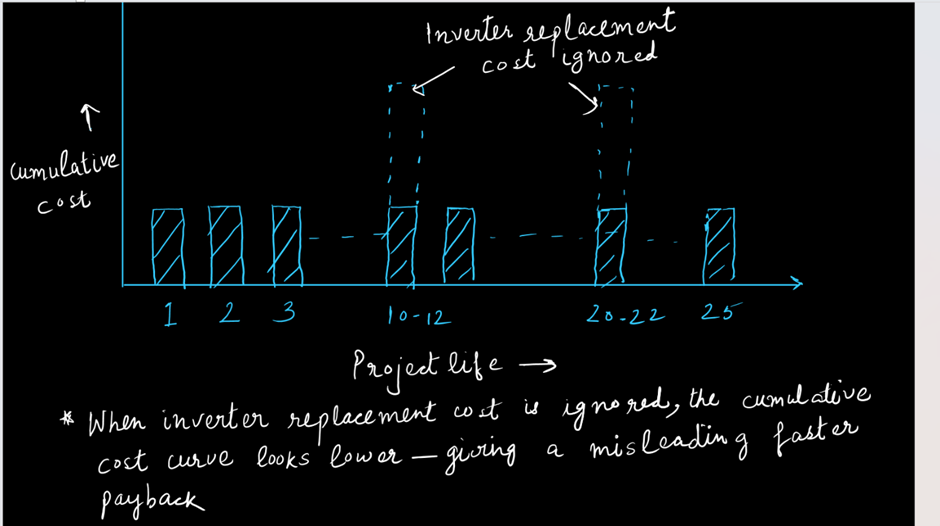 Inverter replacement
cost ignored
↑
Cumulative
cost
1 2 3 10-12 20-22 25
Project life →
* When inverter replacement cost is ignored, the cumulative
cost curve looks lower — giving a misleading faster
payback